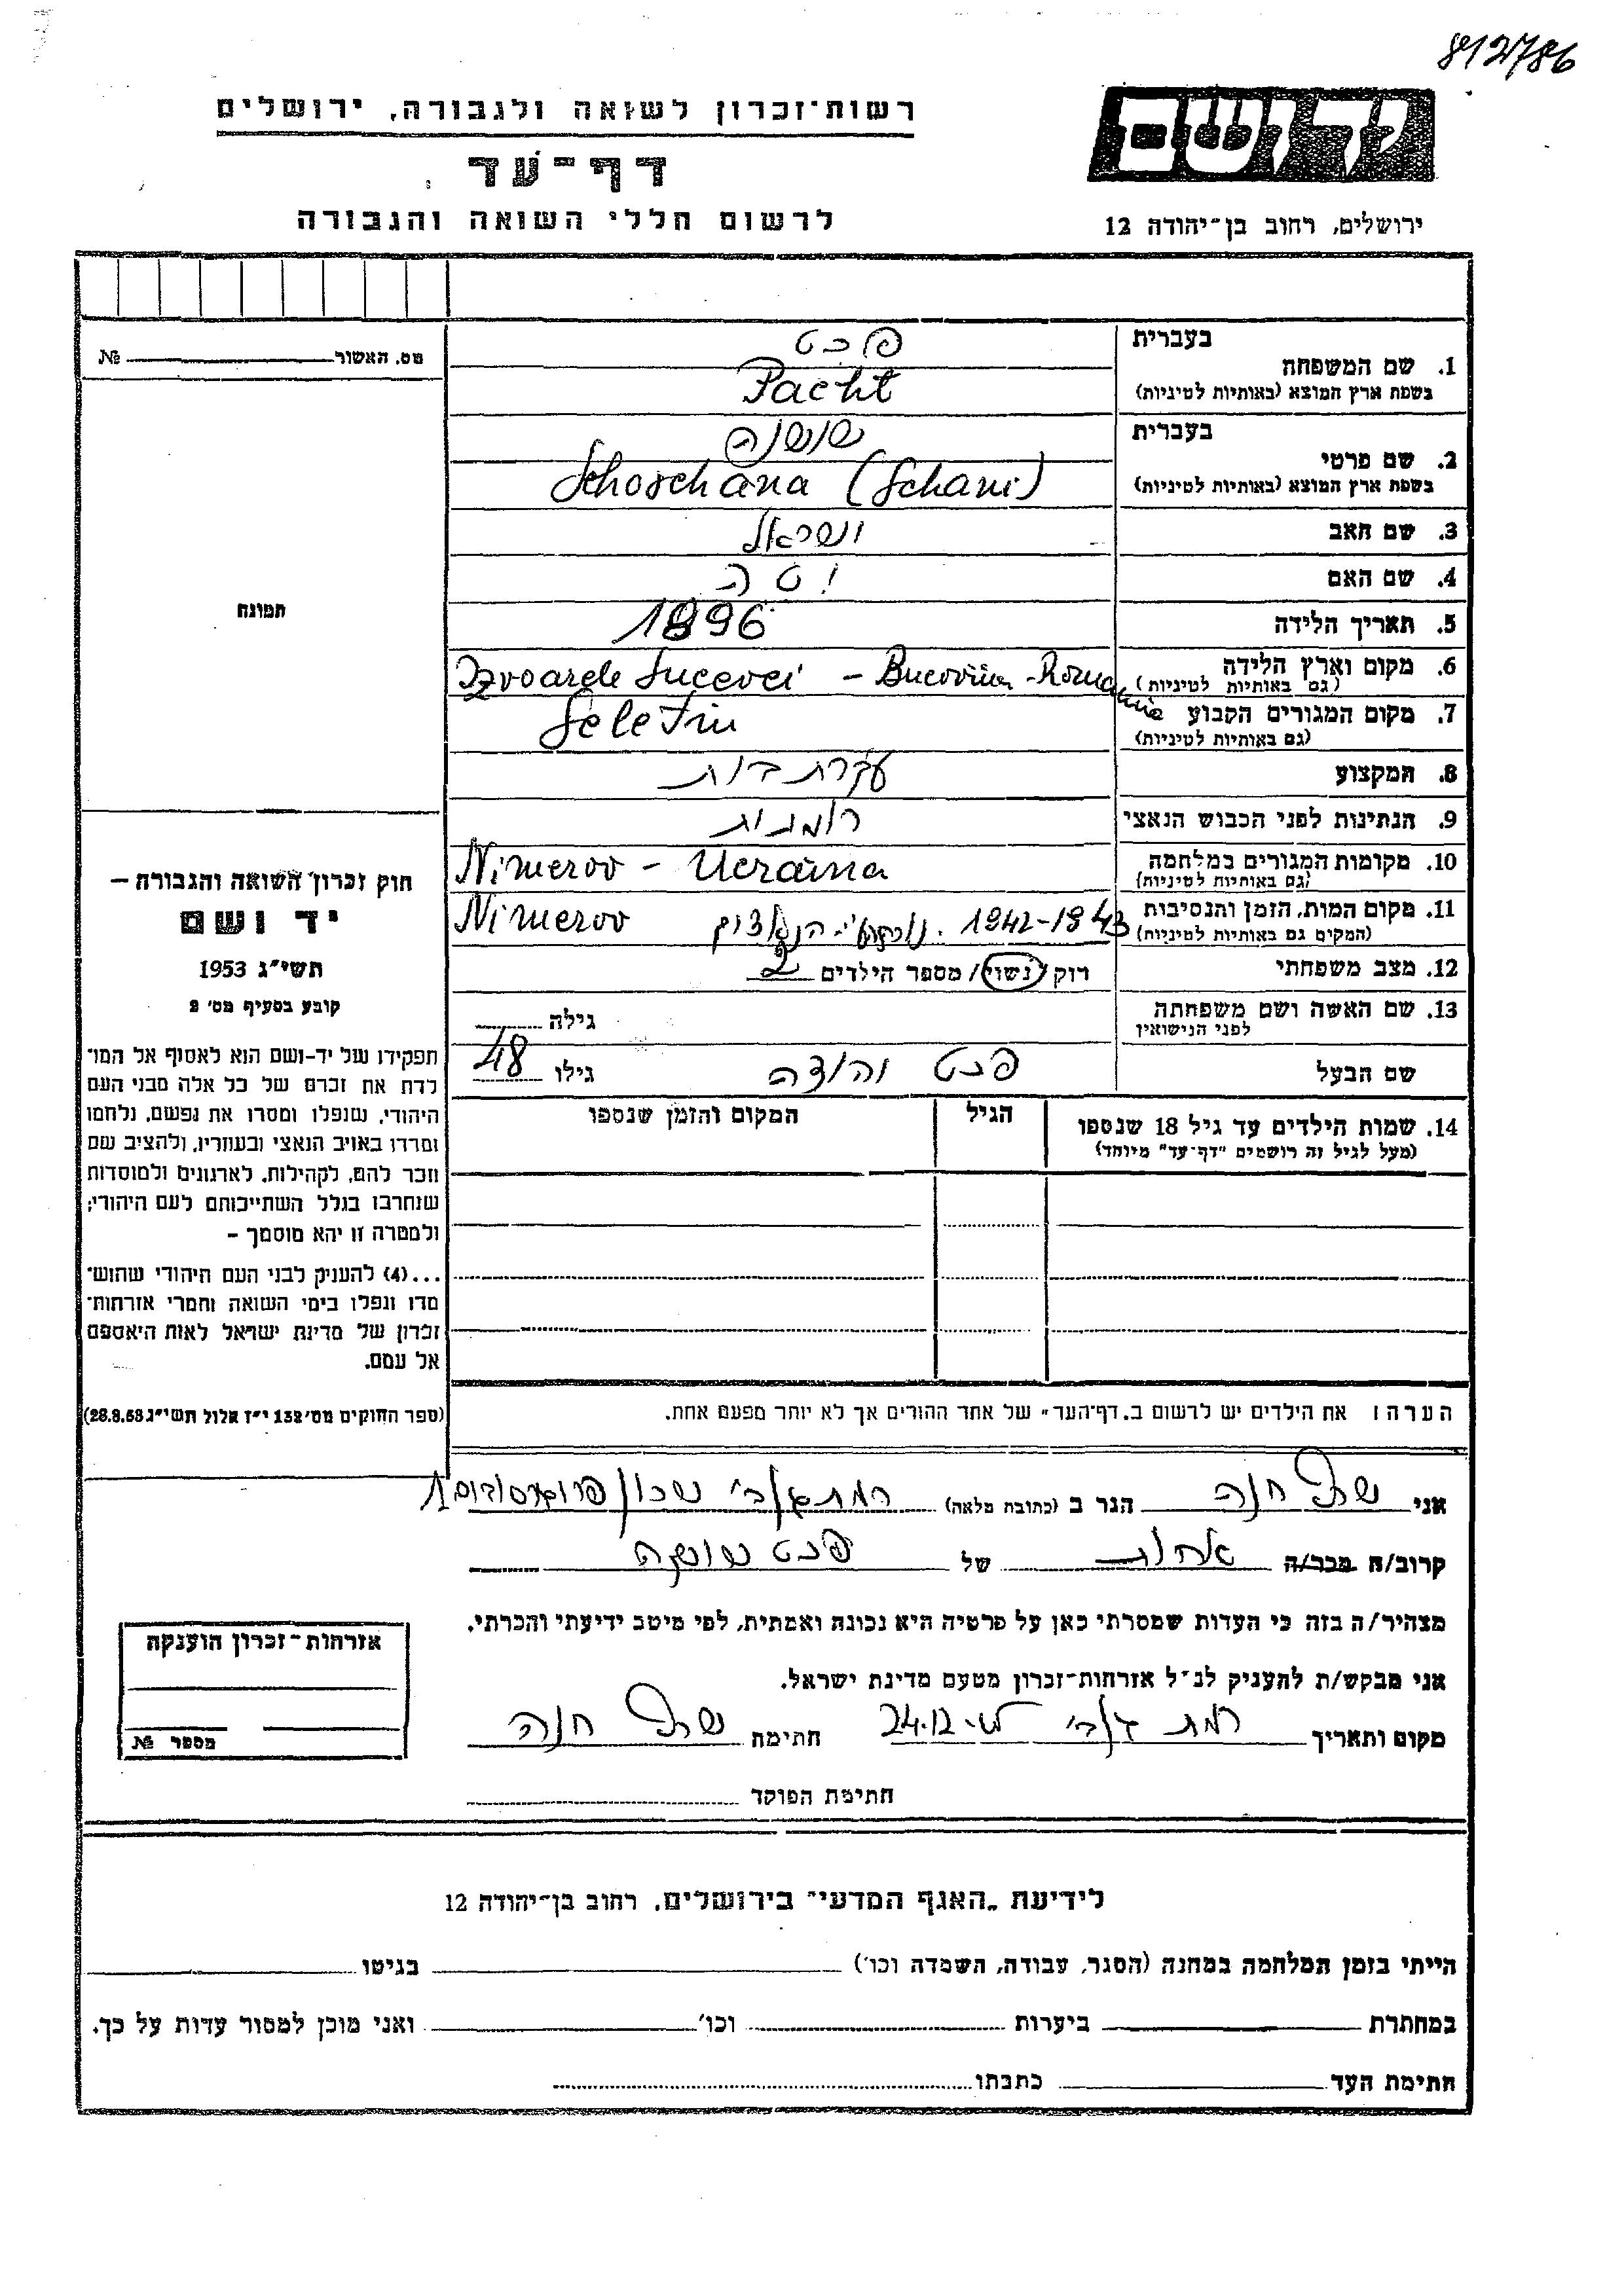 812786
רשות־זכרון לשואה ולגבורה, ירושלים
ידושם
דף־עד
לרשום חללי השואה והגבורה
ירושלים, רחוב בן־יהודה 12
מס. האשור № 
בעברית פכט
1. שם המשפחה
בשפת ארץ המוצא (באותיות לטיניות) Pacht
בעברית שושנה
2. שם פרטי
בשפת ארץ המוצא (באותיות לטיניות) Schoschana (Schani)
3. שם האב ישראל
4. שם האם יטה
תמונה
5. תאריך הלידה 1896
6. מקום וארץ הלידה Izvoarele Sucevei – Bucovina - Romania
(גם באותיות לטיניות)
7. מקום המגורים הקבוע Seletin
(גם באותיות לטיניות)
8. המקצוע עקרת בית
9. הנתינות לפני הכבוש הנאצי רומנית
10. מקומות המגורים במלחמה Nimerov - Ucraina
(גם באותיות לטיניות)
11. מקום המות, הזמן והנסיבות 1942-1943 Nimerov
(המקום גם באותיות לטיניות)
12. מצב משפחתי רוק/נשוי/ מספר הילדים 2
13. שם האשה ושם משפחתה גילה
לפני הנישואין
שם הבעל פכט יהודה גילו 48
14. שמות הילדים עד גיל 18 שנספו הגיל המקום והזמן שנספו
(מעל לגיל זה רושמים "דף־עד" מיוחד)
חוק זכרון השואה והגבורה –
יד ושם
תשי״ג 1953
קובע בסעיף מס׳ 2
תפקידו של יד־ושם הוא לאסוף אל המו־
לדת את זכרם של כל אלה מבני העם
היהודי, שנפלו ומסרו את נפשם, נלחמו
ומרדו באויב הנאצי ובעוזריו, ולהציב שם
וזכר להם, לקהילות, לארגונים ולמוסדות
שנחרבו בגלל השתייכותם לעם היהודי;
ולמטרה זו יהא מוסמך –
...(4) להעניק לבני העם היהודי שהוש־
מדו ונפלו בימי השואה והמרי אזרחות־
זכרון של מדינת ישראל לאות היאספם
אל עמם.
(ספר החוקים מס׳ 132 י״ז אלול תשי״ג 28.8.53)
הערה: את הילדים יש לרשום ב„דף־העד״ של אחד ההורים אך לא יותר מפעם אחת.
אני חנה הגר ב (כתובת מלאה) שכון
קרוב/ה מכר/ה אחות של פכט שושנה
מצהיר/ה בזה כי העדות שמסרתי כאן על פרטיה היא נכונה ואמתית, לפי מיטב ידיעתי והכרתי.
אני מבקש/ת להעניק לנ״ל אזרחות־זכרון מטעם מדינת ישראל.
מקום ותאריך רמת 24.12 חתימה חנה
חתימת הפוקד
אזרחות־זכרון הוענקה
מספר №
לידיעת „האגף המדעי״ בירושלים, רחוב בן־יהודה 12
הייתי בזמן המלחמה במחנה (הסגר, עבודה, השמדה וכו׳) בגיטו
במחתרת ביערות וכו׳ ואני מוכן למסור עדות על כך.
חתימת העד כתבתו